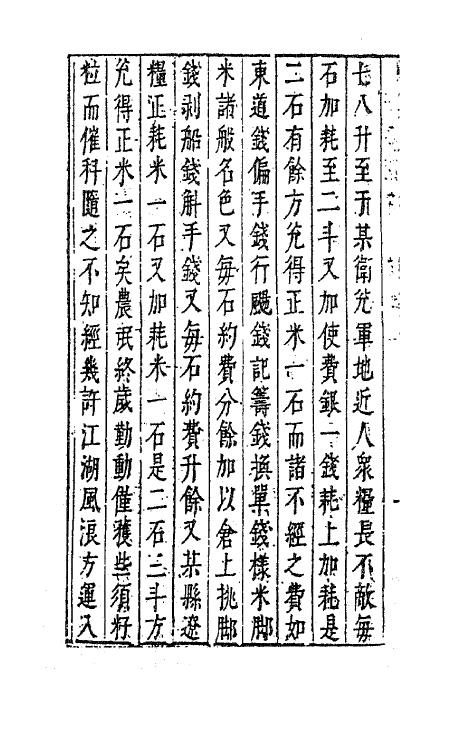 七八升至于某衛兊軍地近人衆糧長不敵每
石加耗至二斗又加使費銀一錢耗上加耗是
二石有餘方兊得正米一石而諸不經之費如
東道錢偏手錢行颺錢記籌錢換單錢樣米脚
米諸般名色又每石約費分餘加以倉上挑脚
錢剥船錢斛手錢又每石約費升餘又某縣遼
糧正耗米一石又加耗米一石是二石三斗方
兊得正米一石矣農民終歲勤動僅獲些須籽
粒而催科隨之不知經幾許江湖風浪方運入